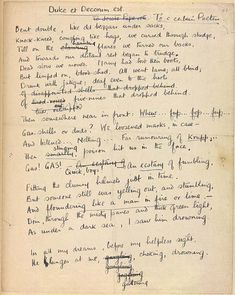 Dulce et Decorum est.
To Jessie Pope etc. To a certain Poetess
Bent double, like old beggars under sacks,
Knock-kneed, coughing like hags, we cursed through sludge,
Till on the haunting flares we turned our backs,
And towards our distant rest began to trudge,
Dead slow we moved. Many had lost their boots,
But limped on, blood-shod. All went lame; all blind;
Drunk with fatigue; deaf even to the hoots
Of disappointed shells that dropped behind.
of five-nines that dropped behind
Then somewhere near in front: Whew... fup.. fop.. fup..
Gas-shells or duds? We loosened masks in case –
And listened... Nothing... Far rumouring of Krupp,..
Then smartly, poison hit us in the face,
Gas! GAS! Quick, boys! – An ecstasy of fumbling,
Fitting the clumsy helmets just in time.
But someone still was yelling out, and stumbling,
And floundering like a man in fire or lime –
Dim through the misty panes and thick green light,
As under a dark sea, I saw him drowning.
In all my dreams, before my helpless sight,
He lunges at me, choking, drowning.